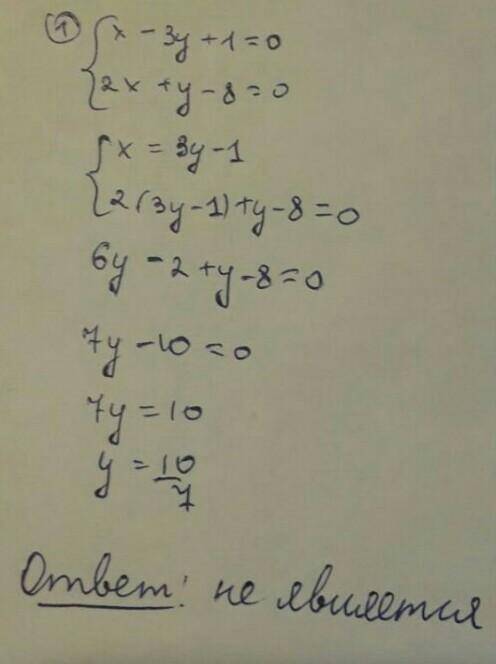 ① { x - 3y + 1 = 0
{ 2x + y - 8 = 0
{ x = 3y - 1
{ 2(3y-1) + y - 8 = 0
6y - 2 + y - 8 = 0
7y - 10 = 0
7y = 10
y = 10/7
Ответ: не является